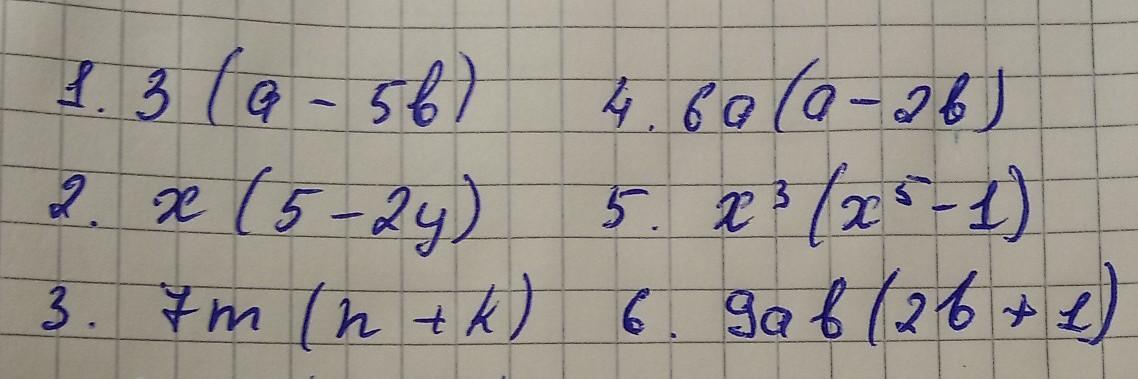 1. 3 (a - 5b)
2. x (5 - 2y)
3. 7m (n + k)
4. 6a (a - 2b)
5. x³ (x⁵ - 1)
6. 9ab (2b + 1)